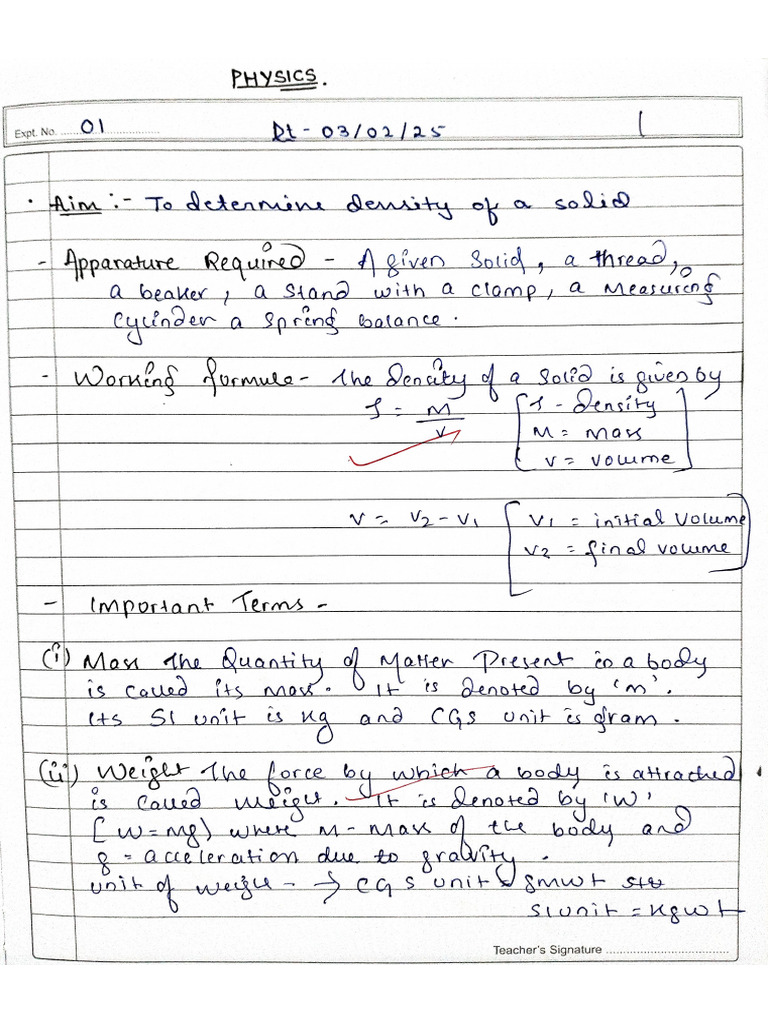 PHYSICS.
Expt. No. 01
Dt - 03/02/25
1
• Aim :- To determine density of a solid
- Apparature Required - A given Solid, a thread,
a beaker, a stand with a clamp, a Measuring
Cylinder a spring balance.
- Working formule - The Density of a solid is given by
S = M/V [ S - density
M = mass
V = volume ]
V = V2 - V1 [ V1 = initial volume
V2 = final volume ]
- Important Terms -
(i) Mass The Quantity of Matter Present in a body
is called its mass. It is denoted by 'm'.
Its SI unit is kg and CGS unit is gram.
(ii) Weight The force by which a body is attrached
is called weight. It is denoted by 'W'
[W = mg) where M - Mass of the body and
g = acceleration due to gravity.
unit of weight - → CGS unit = gmwt
SI unit = kgwt
Teacher's Signature